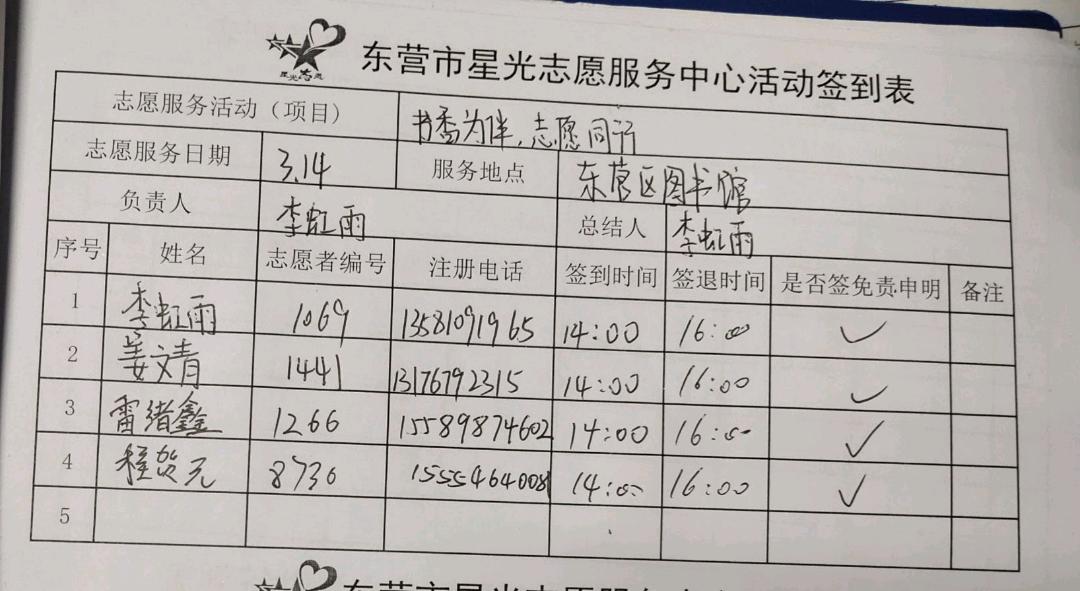 星光志愿
东营市星光志愿服务中心活动签到表
志愿服务活动（项目） 书香为伴，志愿同行
志愿服务日期 3.14 服务地点 东营区图书馆
负责人 李虹雨 总结人 李虹雨
序号 姓名 志愿者编号 注册电话 签到时间 签退时间 是否签免责申明 备注
1 李虹雨 1069 13581091965 14:00 16:00 ✓
2 姜文青 1441 13176792315 14:00 16:00 ✓
3 雷绪鑫 1266 15589874602 14:00 16:00 ✓
4 程贺元 8730 15554640081 14:00 16:00 ✓
5
东营市星光志愿服务